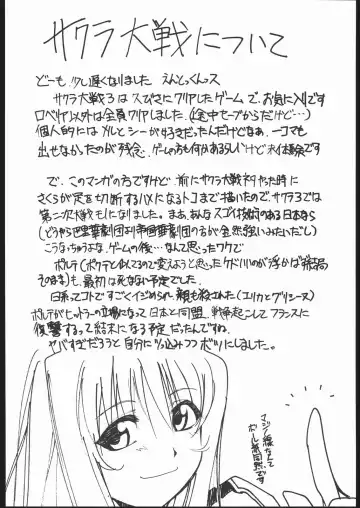 サクラ大戦について
どーも少し遅くなりました えんとっくんっス
サクラ大戦3はスぴさにクリヤしたゲームで、お気に入りです
ロベリヤ以外は全員クリヤしました。(途中セーブからだけど…)
個人的にはメルとシーが好きだったんだけどなあ、一コマも
出せなかったのが残念、ゲームの方も何かあるらしいけど
で、このマンガの方ですけど前にサクラ大戦ネタやった時に
さくらが足を切断するハメになるトコまで描いたので、サクラ3では
第二次大戦モノになりました。まあ、あんなスゴイ技術のある日本なら
(どうやら巴里華撃団より帝国華撃団の方が全然強いみたいだし)
こうなっちゃうよな、ゲームの後…なんて思ったワケで
ボルテ(ポクテと似てるので変えようと思ったケドいいのが浮かばず結局
そのまま)も、最初は死なない予定でした。
日系ってコトですごくイジめられ、親も殺された(エリカとグリシーヌ)
ボルテがヒットラーの立場になって日本と同盟、戦争起こしてフランスに
復讐するって結末になる予定だったんですね
ヤバすぎだろうと自分につっ込みつつボツにしました。
マジノ線なんて
ポール無問題です